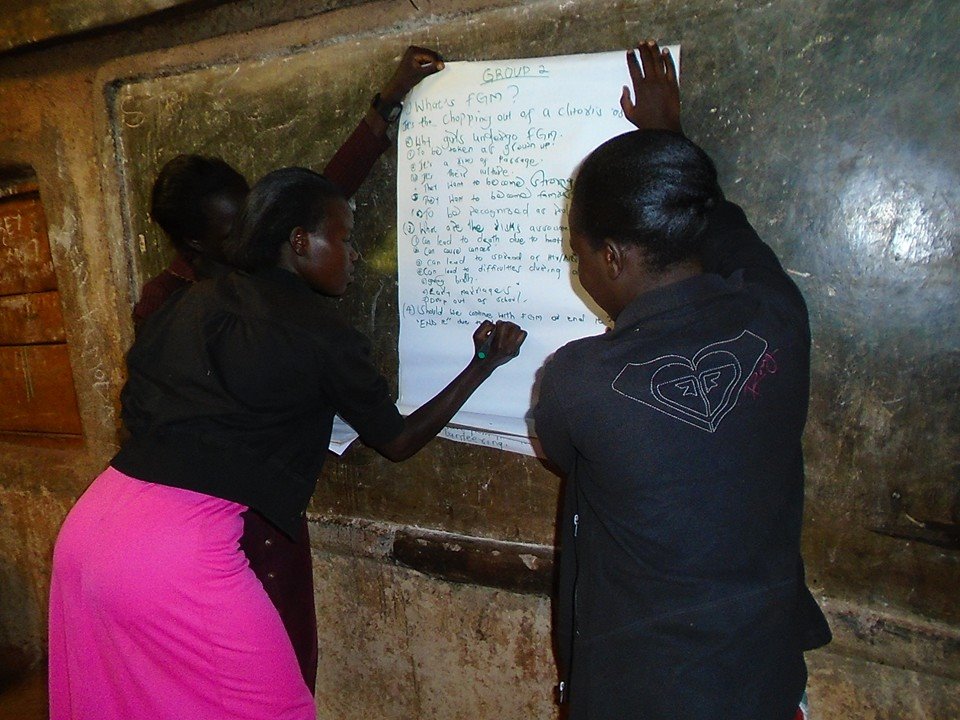 GROUP 2
① What's FGM?
It's the Chopping out of a clitoris
② Why girls undergo FGM.
① To be taken as grown up.
It's a of Passage.
It's their culture.
They want to become Strong
They want to become
To be recognised as
③ What are the risks
① Can lead to death due to
② Can cause cancer
③ Can lead to spread of HIV/AIDS
④ Can lead to difficulties during
giving birth
Early marriages
Drop out of school.
(4) Should we continue with FGM or end it
"END IT" due
Roxy